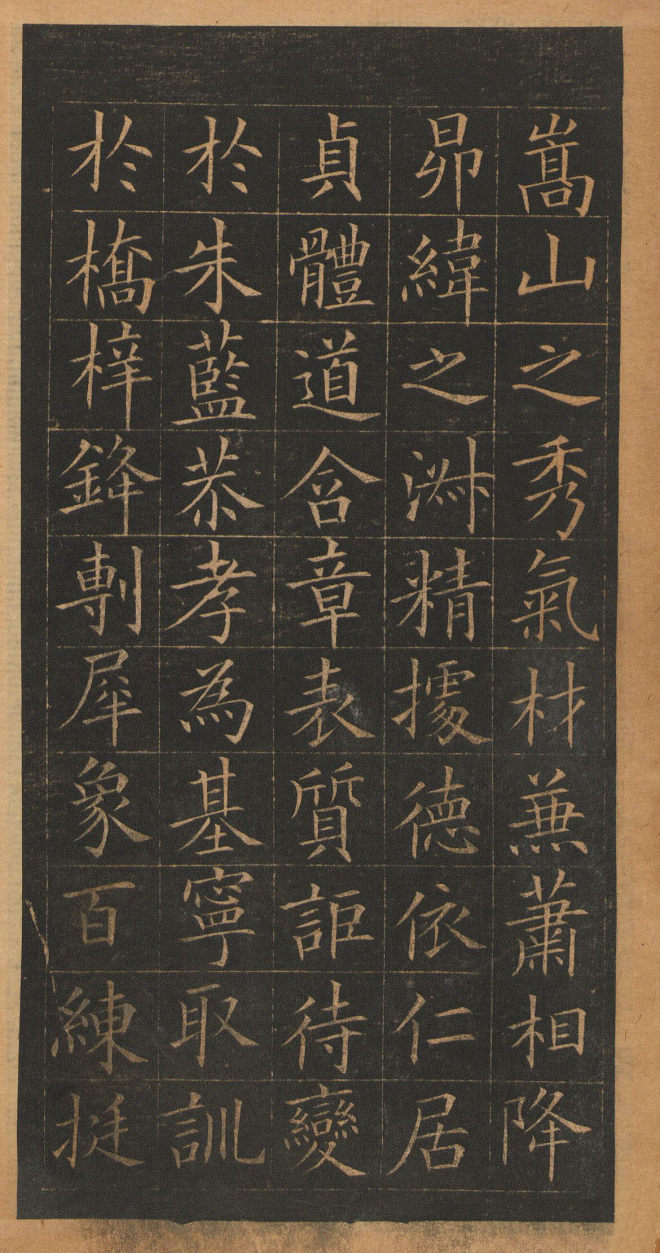 嵩山之秀氣材兼蕭相降
昴緯之淋精據德依仁居
貞體道含章表質詎待變
於朱藍恭孝為基寧取訓
於橋梓鋒剸犀象百練挺